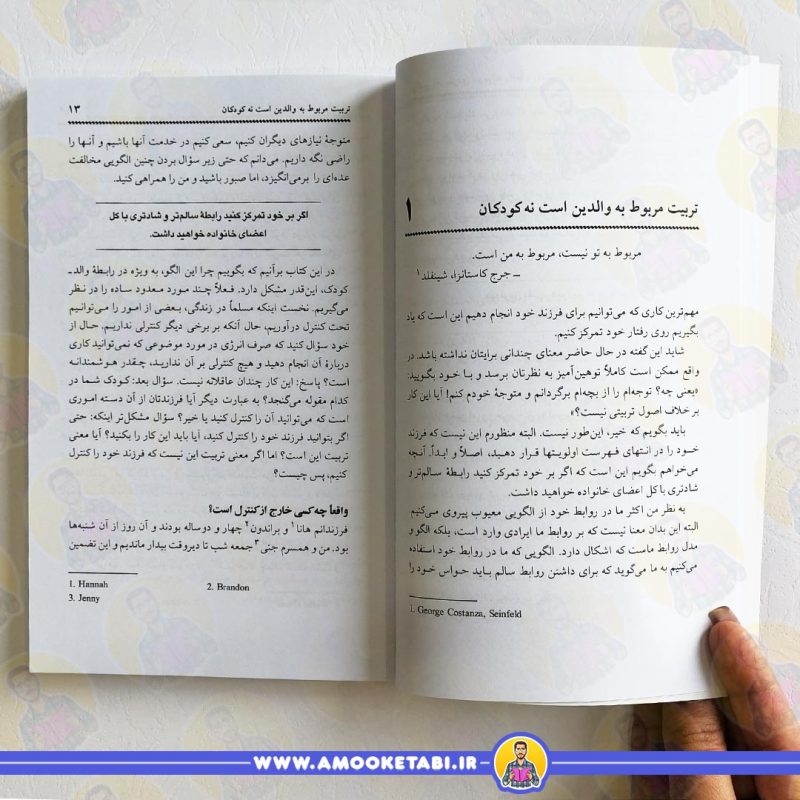 ۱
تربیت مربوط به والدین است نه کودکان
مربوط به تو نیست، مربوط به من است.
ـ جرج کاستانزا، شینفلد۱
مهم‌ترین کاری که می‌توانیم برای فرزند خود انجام دهیم این است که یاد
بگیریم روی رفتار خود تمرکز کنیم.
شاید این گفته در حال حاضر معنای چندانی برایتان نداشته باشد. در
واقع ممکن است کاملاً توهین‌آمیز به نظرتان برسد و با خود بگویید:
«یعنی چه؟ توجه‌ام را از بچه‌ام برگردانم و متوجهٔ خودم کنم! آیا این کار
برخلاف اصول تربیتی نیست؟»
باید بگویم که خیر، این‌طور نیست. البته منظورم این نیست که فرزند
خود را در انتهای فهرست اولویتها قرار دهید، اصلاً و ابداً. آنچه
می‌خواهم بگویم این است که اگر بر خود تمرکز کنید رابطهٔ سالم‌تر و
شادتری با کل اعضای خانواده خواهید داشت.
به نظر من اکثر ما در روابط خود از الگویی معیوب پیروی می‌کنیم
البته این بدان معنا نیست که بر روابط ما ایرادی وارد است، بلکه الگو و
مدل روابط ماست که اشکال دارد. الگویی که ما در روابط خود استفاده
می‌کنیم به ما می‌گوید که برای داشتن روابط سالم باید حواس خود را
1. George Costanza, Seinfeld
تربیت مربوط به والدین است نه کودکان ۱۳
متوجهٔ نیازهای دیگران کنیم، سعی کنیم در خدمت آنها باشیم و آنها را
راضی نگه داریم. می‌دانم که حتی زیر سؤال بردن چنین الگویی مخالفت
عده‌ای را برمی‌انگیزد، اما صبور باشید و من را همراهی کنید.
اگر بر خود تمرکز کنید رابطهٔ سالم‌تر و شادتری با کل
اعضای خانواده خواهید داشت.
در این کتاب برآنیم که بگوییم چرا این الگو، به ویژه در رابطهٔ والد ـ
کودک، این‌قدر مشکل دارد. فعلاً چند مورد معدود ساده را در نظر
می‌گیریم. نخست اینکه مسلماً در زندگی، بعضی از امور را می‌توانیم
تحت کنترل درآوریم، حال آنکه بر برخی دیگر کنترلی نداریم. حال از
خود سؤال کنید که صرف انرژی در مورد موضوعی که نمی‌توانید کاری
دربارهٔ آن انجام دهید و هیچ کنترلی بر آن ندارید، چقدر هوشمندانه
است؟ پاسخ: این کار چندان عاقلانه نیست. سؤال بعد: کودک شما در
کدام مقوله می‌گنجد؟ به عبارت دیگر آیا فرزندتان از آن دسته اموری
است که می‌توانید آن را کنترل کنید یا خیر؟ سؤال مشکل‌تر اینکه: حتی
اگر بتوانید فرزند خود را کنترل کنید، آیا باید این کار را بکنید؟ آیا معنی
تربیت این است؟ اما اگر معنی تربیت این نیست که فرزند خود را کنترل
کنیم، پس چیست؟
واقعاً چه کسی خارج از کنترل است؟
فرزندانم هانا۱ و براندون۲ چهار و دوساله بودند و آن روز از آن شنبه‌ها
بود. من و همسرم جنی۳ جمعه شب تا دیروقت بیدار ماندیم و این تضمین
1. Hannah 2. Brandon
3. Jenny
WWW.AMOOKETABI.IR